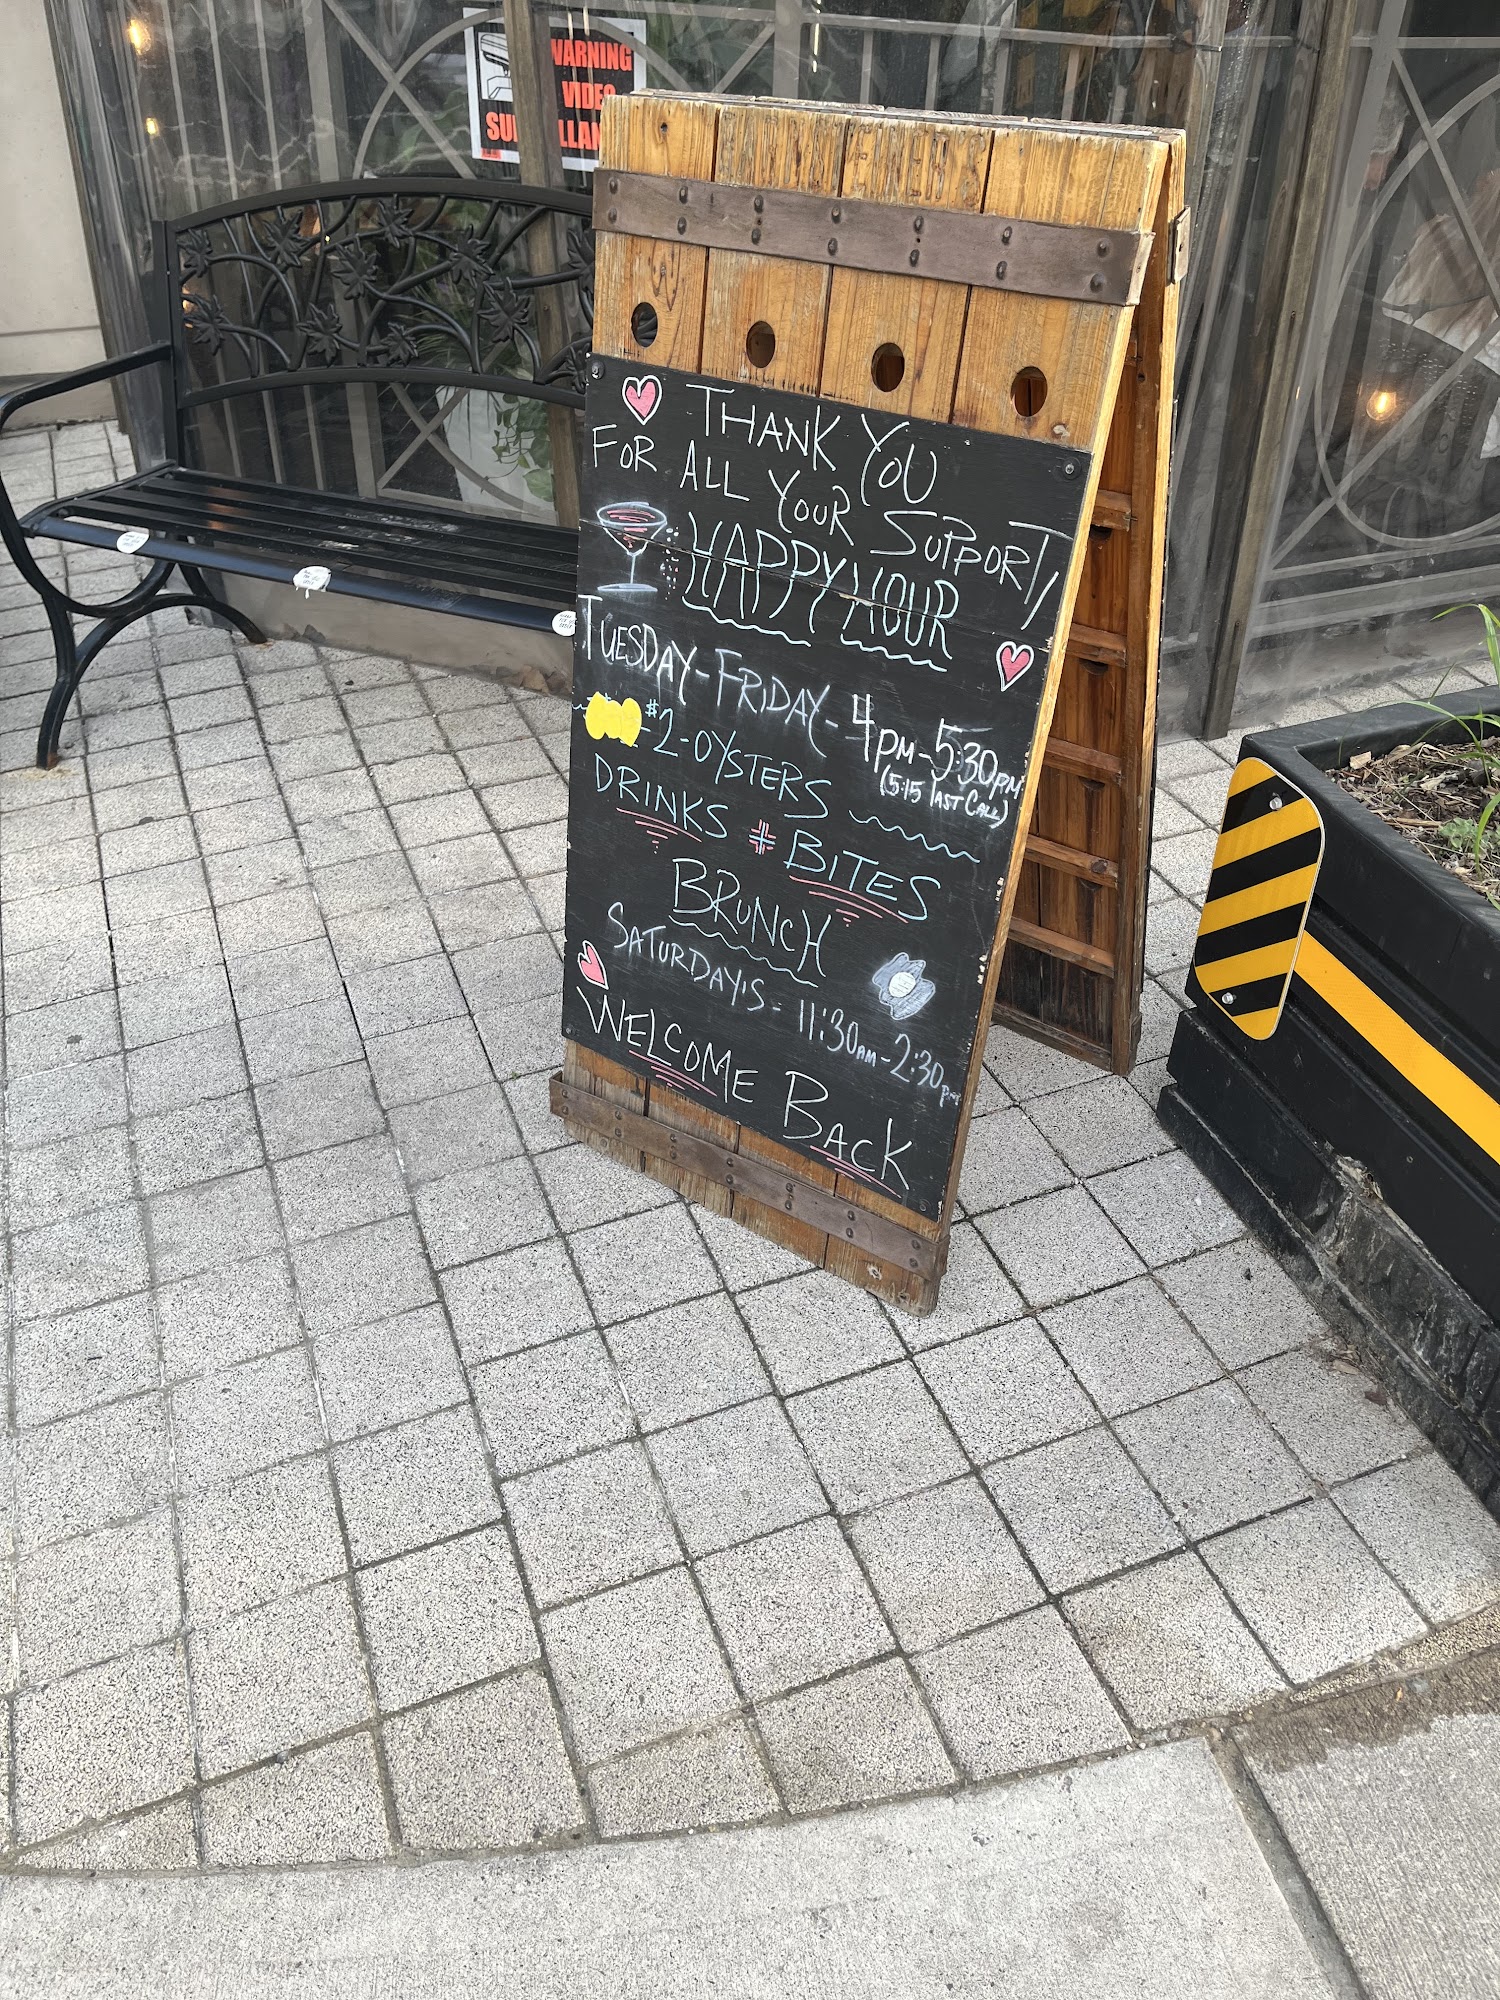 WARNING
VIDEO
THANK YOU
FOR ALL YOUR SUPPORT,
HAPPY HOUR
TUESDAY - FRIDAY - 4PM - 5:30PM
(5:15 LAST CALL)
#2 - OYSTERS
DRINKS + BITES
BRUNCH
SATURDAY'S - 11:30AM - 2:30PM
WELCOME BACK